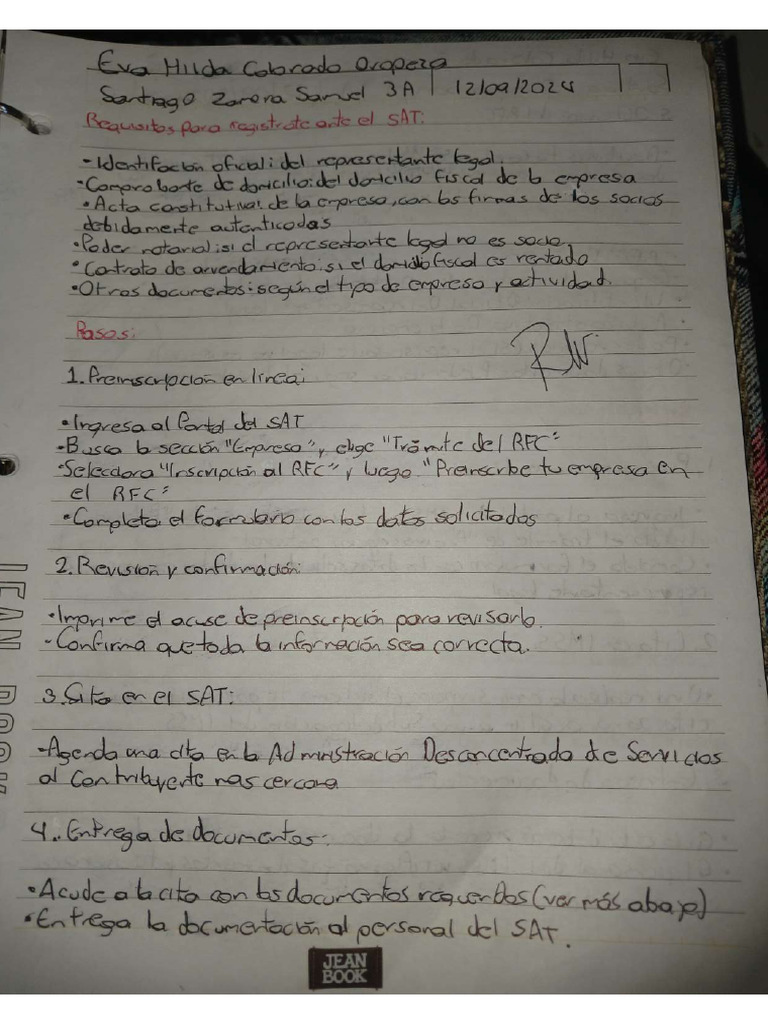 Eva Hilda Colorado Oropeza
Santiago Zamora Samuel 3A 12/09/2024
Requisitos para registrate ante el SAT:
- Identifación oficial: del representante legal.
• Comprobante de domicilio: del domicilio fiscal de la empresa
• Acta constitutiva: de la empresa, con las firmas de los socios
debidamente autenticadas
• Poder notarial: si el representante legal no es socio,
• Contrato de arrendamiento: si el domicilio fiscal es rentado
• Otros documentos: según el typo de empresa y actividad.
Pasos:
1. Preinscripción en linea:
• Ingresa al Portal del SAT
• Busca la sección "Empresa", y elige "Trámite del RFC"
• Selecciona "Inscripción al RFC" y luego "Preinscribe tu empresa en
el RFC"
• Completa el formulario con los datos solicitados
2. Revisión y confirmación:
• Imprime el acuse de preinscripción para revisarlo.
- Confirma que toda la información sea correcta.
3. Sita en el SAT:
- Agenda una cita en la Administración Desconcentrada de Servicios
al Contribuyente mas cercana
4. Entrega de documentos:
• Acude a la cita con los documentos requeridos (ver más abajo)
• Entrega la documentación al personal del SAT.
JEAN
BOOK
JEAN BOOK